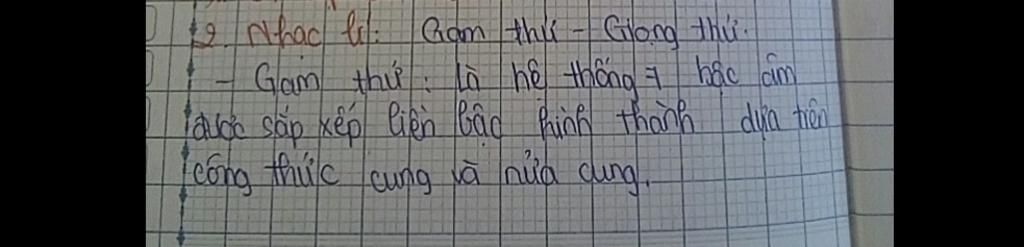 2. Nhạc lí: Gam thứ - Giọng thứ.
- Gam thứ: Là hệ thống 7 bậc âm
được sắp xếp liền bậc hình thành dựa trên
công thức cung và nửa cung.